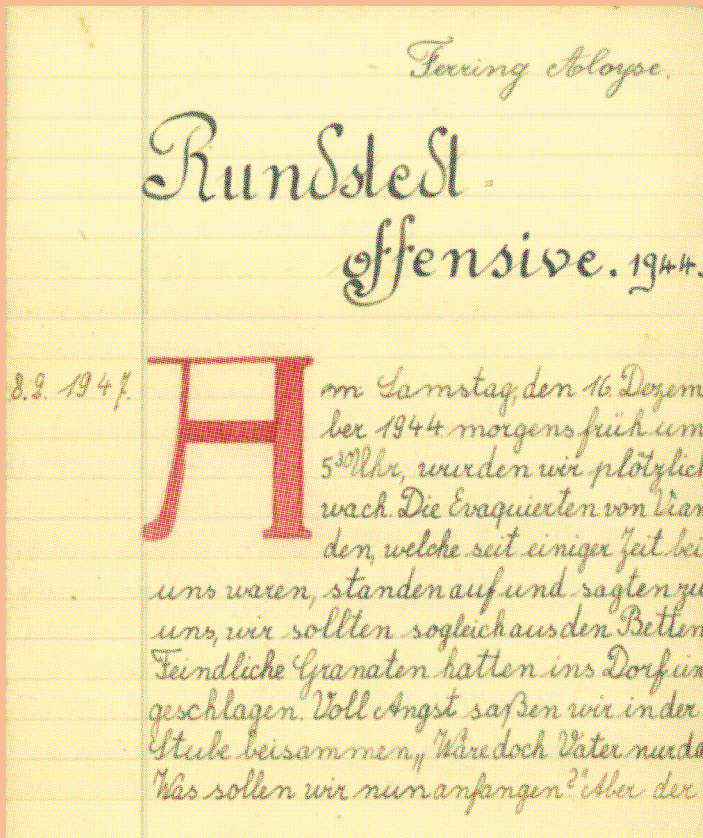 Ferring Aloyse.
Rundstedt-
offensive. 1944.
8.2. 1947.
Am Samstag, den 16. Dezem
ber 1944 morgens früh um
5³⁰ Uhr, wurden wir plötzlich
wach. Die Evaquierten von Vian
den, welche seit einiger Zeit bei
uns waren, standen auf und sagten zu
uns, wir sollten sogleich aus den Betten
Feindliche Granaten hatten ins Dorf ein
geschlagen. Voll Angst saßen wir in der
Stube beisammen, „Wäre doch Vater nur da
Was sollen wir nun anfangen?" Aber der